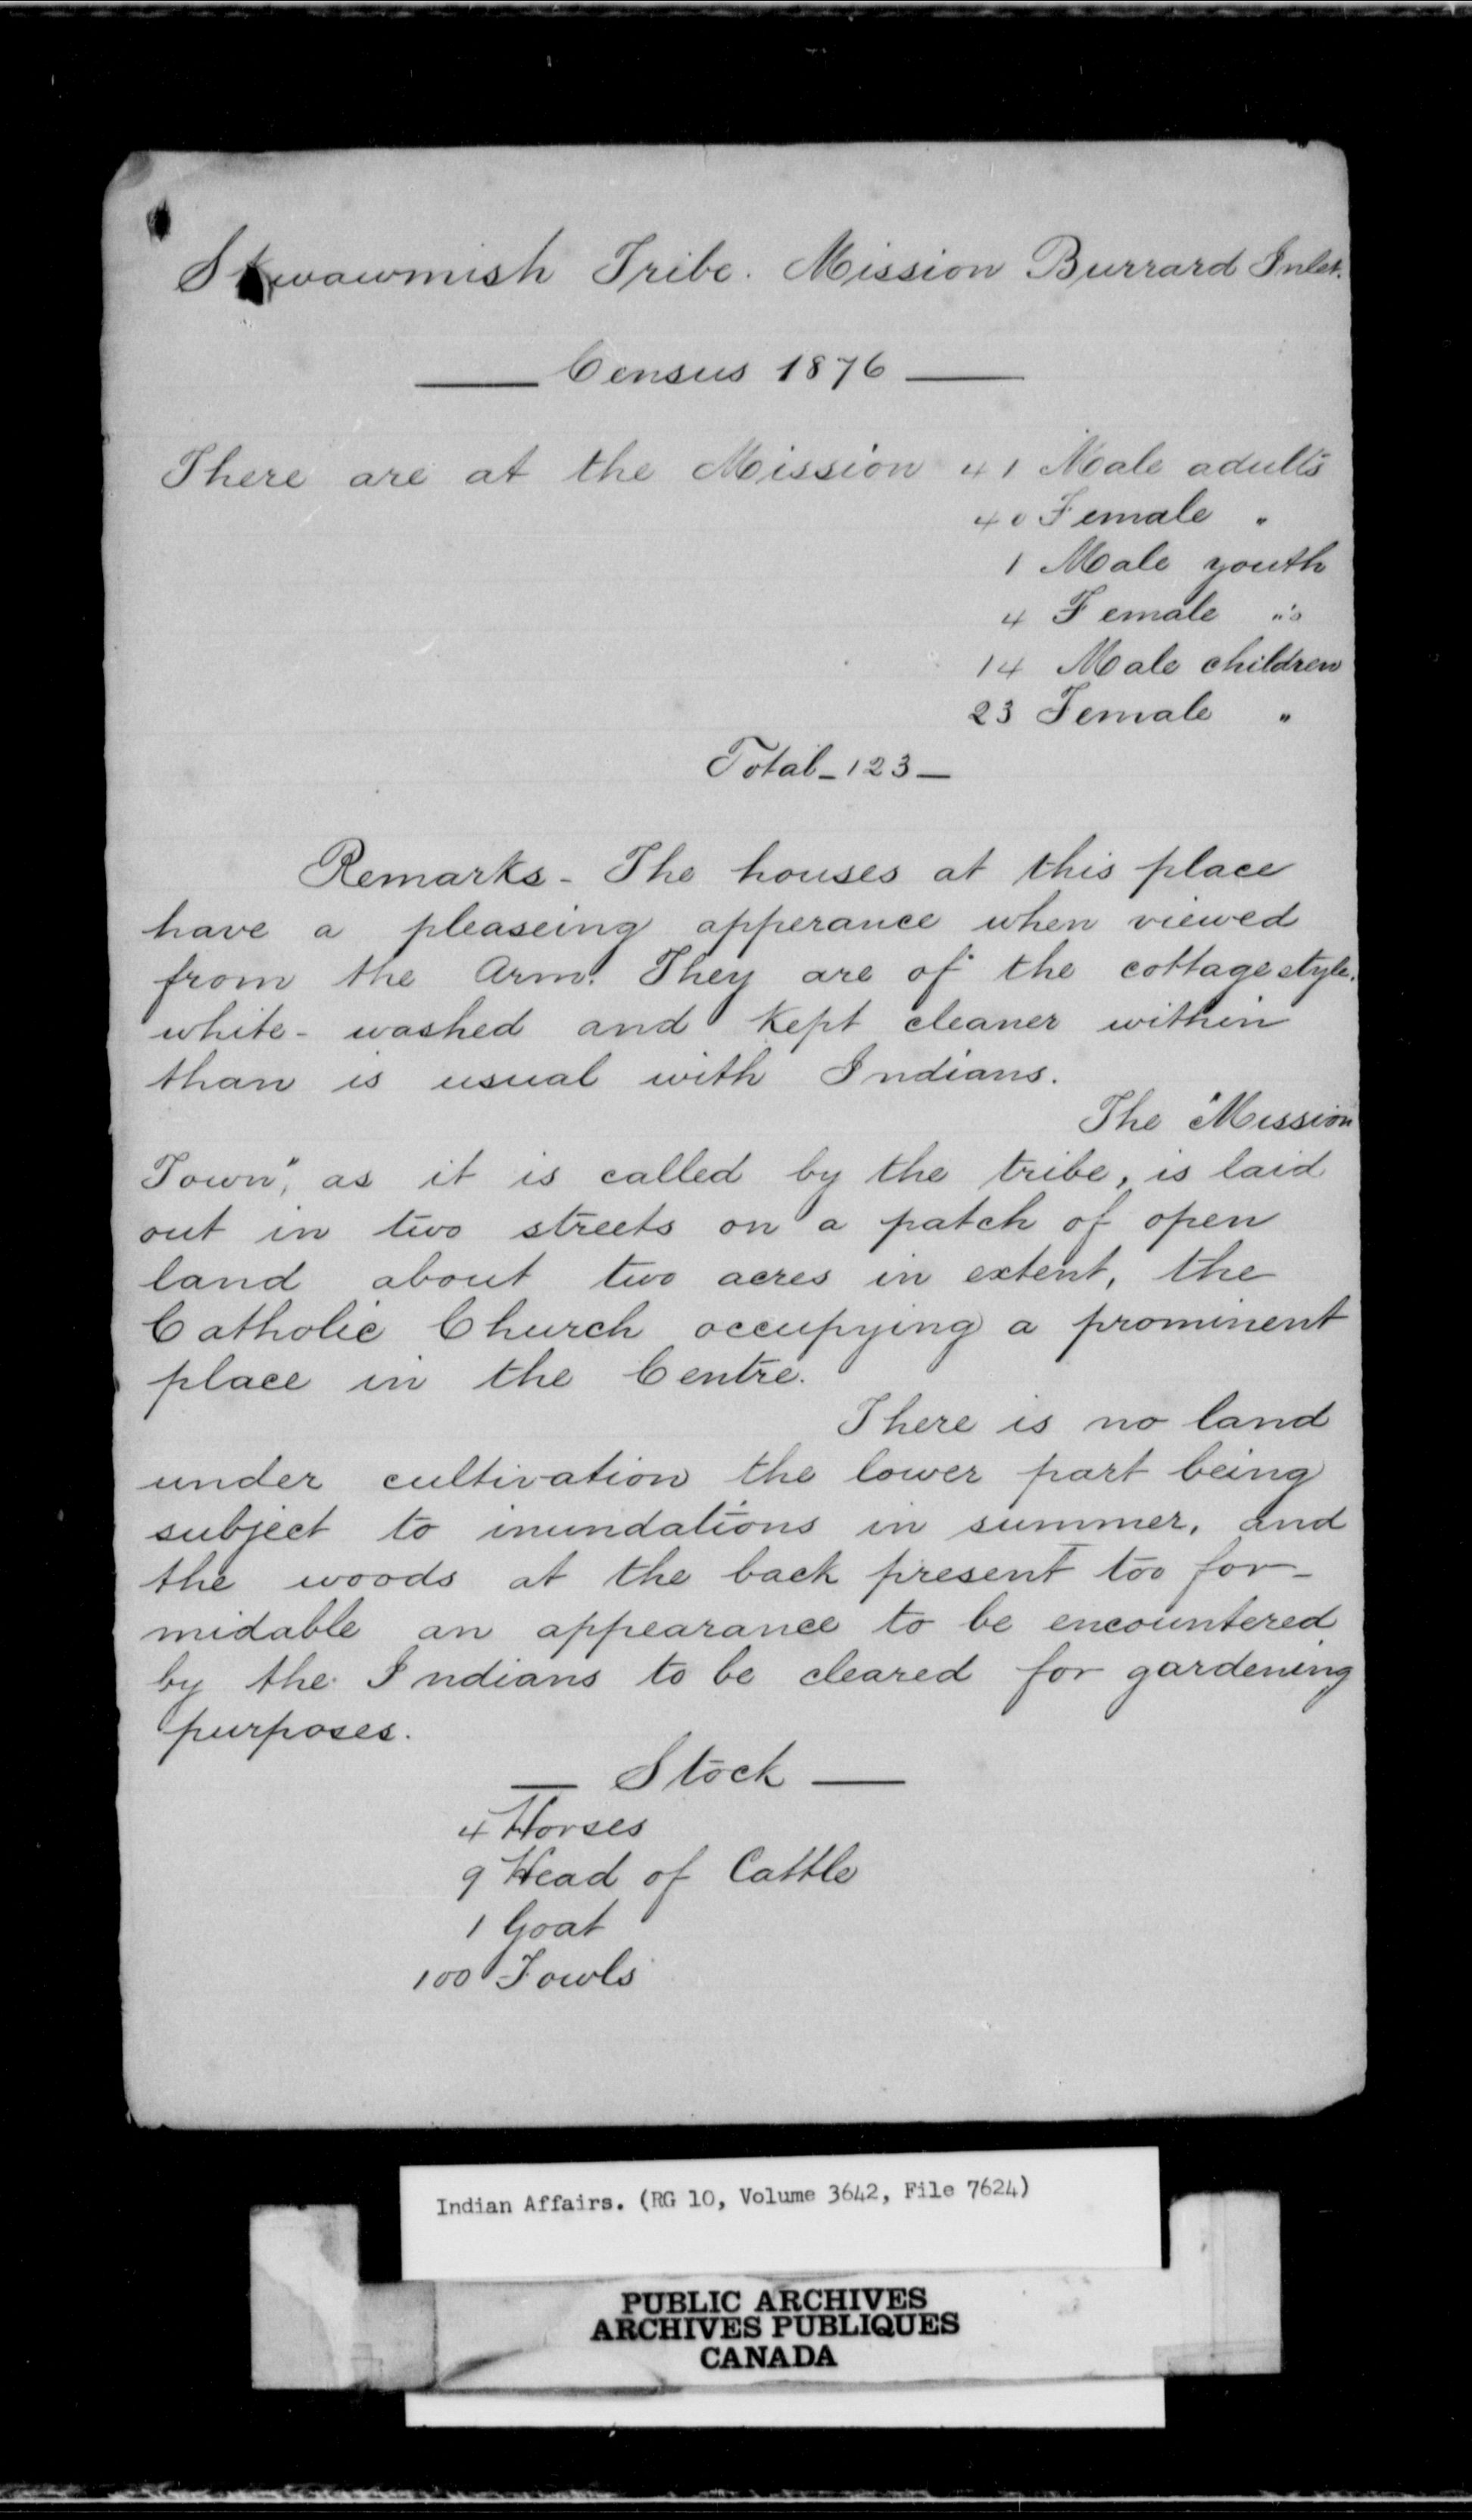 Skwawmish Tribe. Mission Burrard Inlet.
Census 1876
There are at the Mission 41 Male adults
40 Female "
1 Male youth
4 Female "s
14 Male children
23 Female "
Total - 123 -
Remarks - The houses at this place
have a pleaseing apperance when viewed
from the Arm. They are of the cottage style.
white-washed and kept cleaner within
than is usual with Indians.
The "Mission
Town", as it is called by the tribe, is laid
out in two streets on a patch of open
land about two acres in extent, the
Catholic Church occupying a prominent
place in the Centre.
There is no land
under cultivation the lower part being
subject to inundations in summer, and
the woods at the back present too for-
midable an appearance to be encountered
by the Indians to be cleared for gardening
purposes.
Stock
4 Horses
9 Head of Cattle
1 Goat
100 Fowls
Indian Affairs. (RG 10, Volume 3642, File 7624)
PUBLIC ARCHIVES
ARCHIVES PUBLIQUES
CANADA